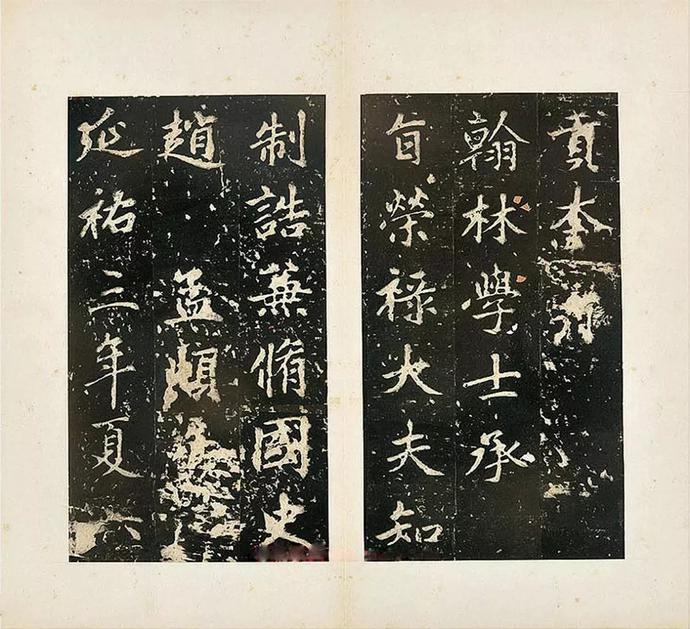 貢奎
翰林學士承
旨榮祿大夫知
制誥兼脩國史
趙孟頫
延祐三年夏六